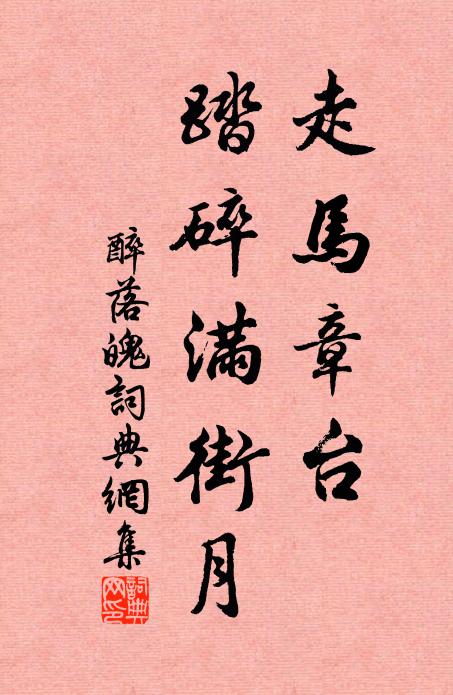 走馬章台
踏碎滿街月
醉落魄詞典網集
詞典网印